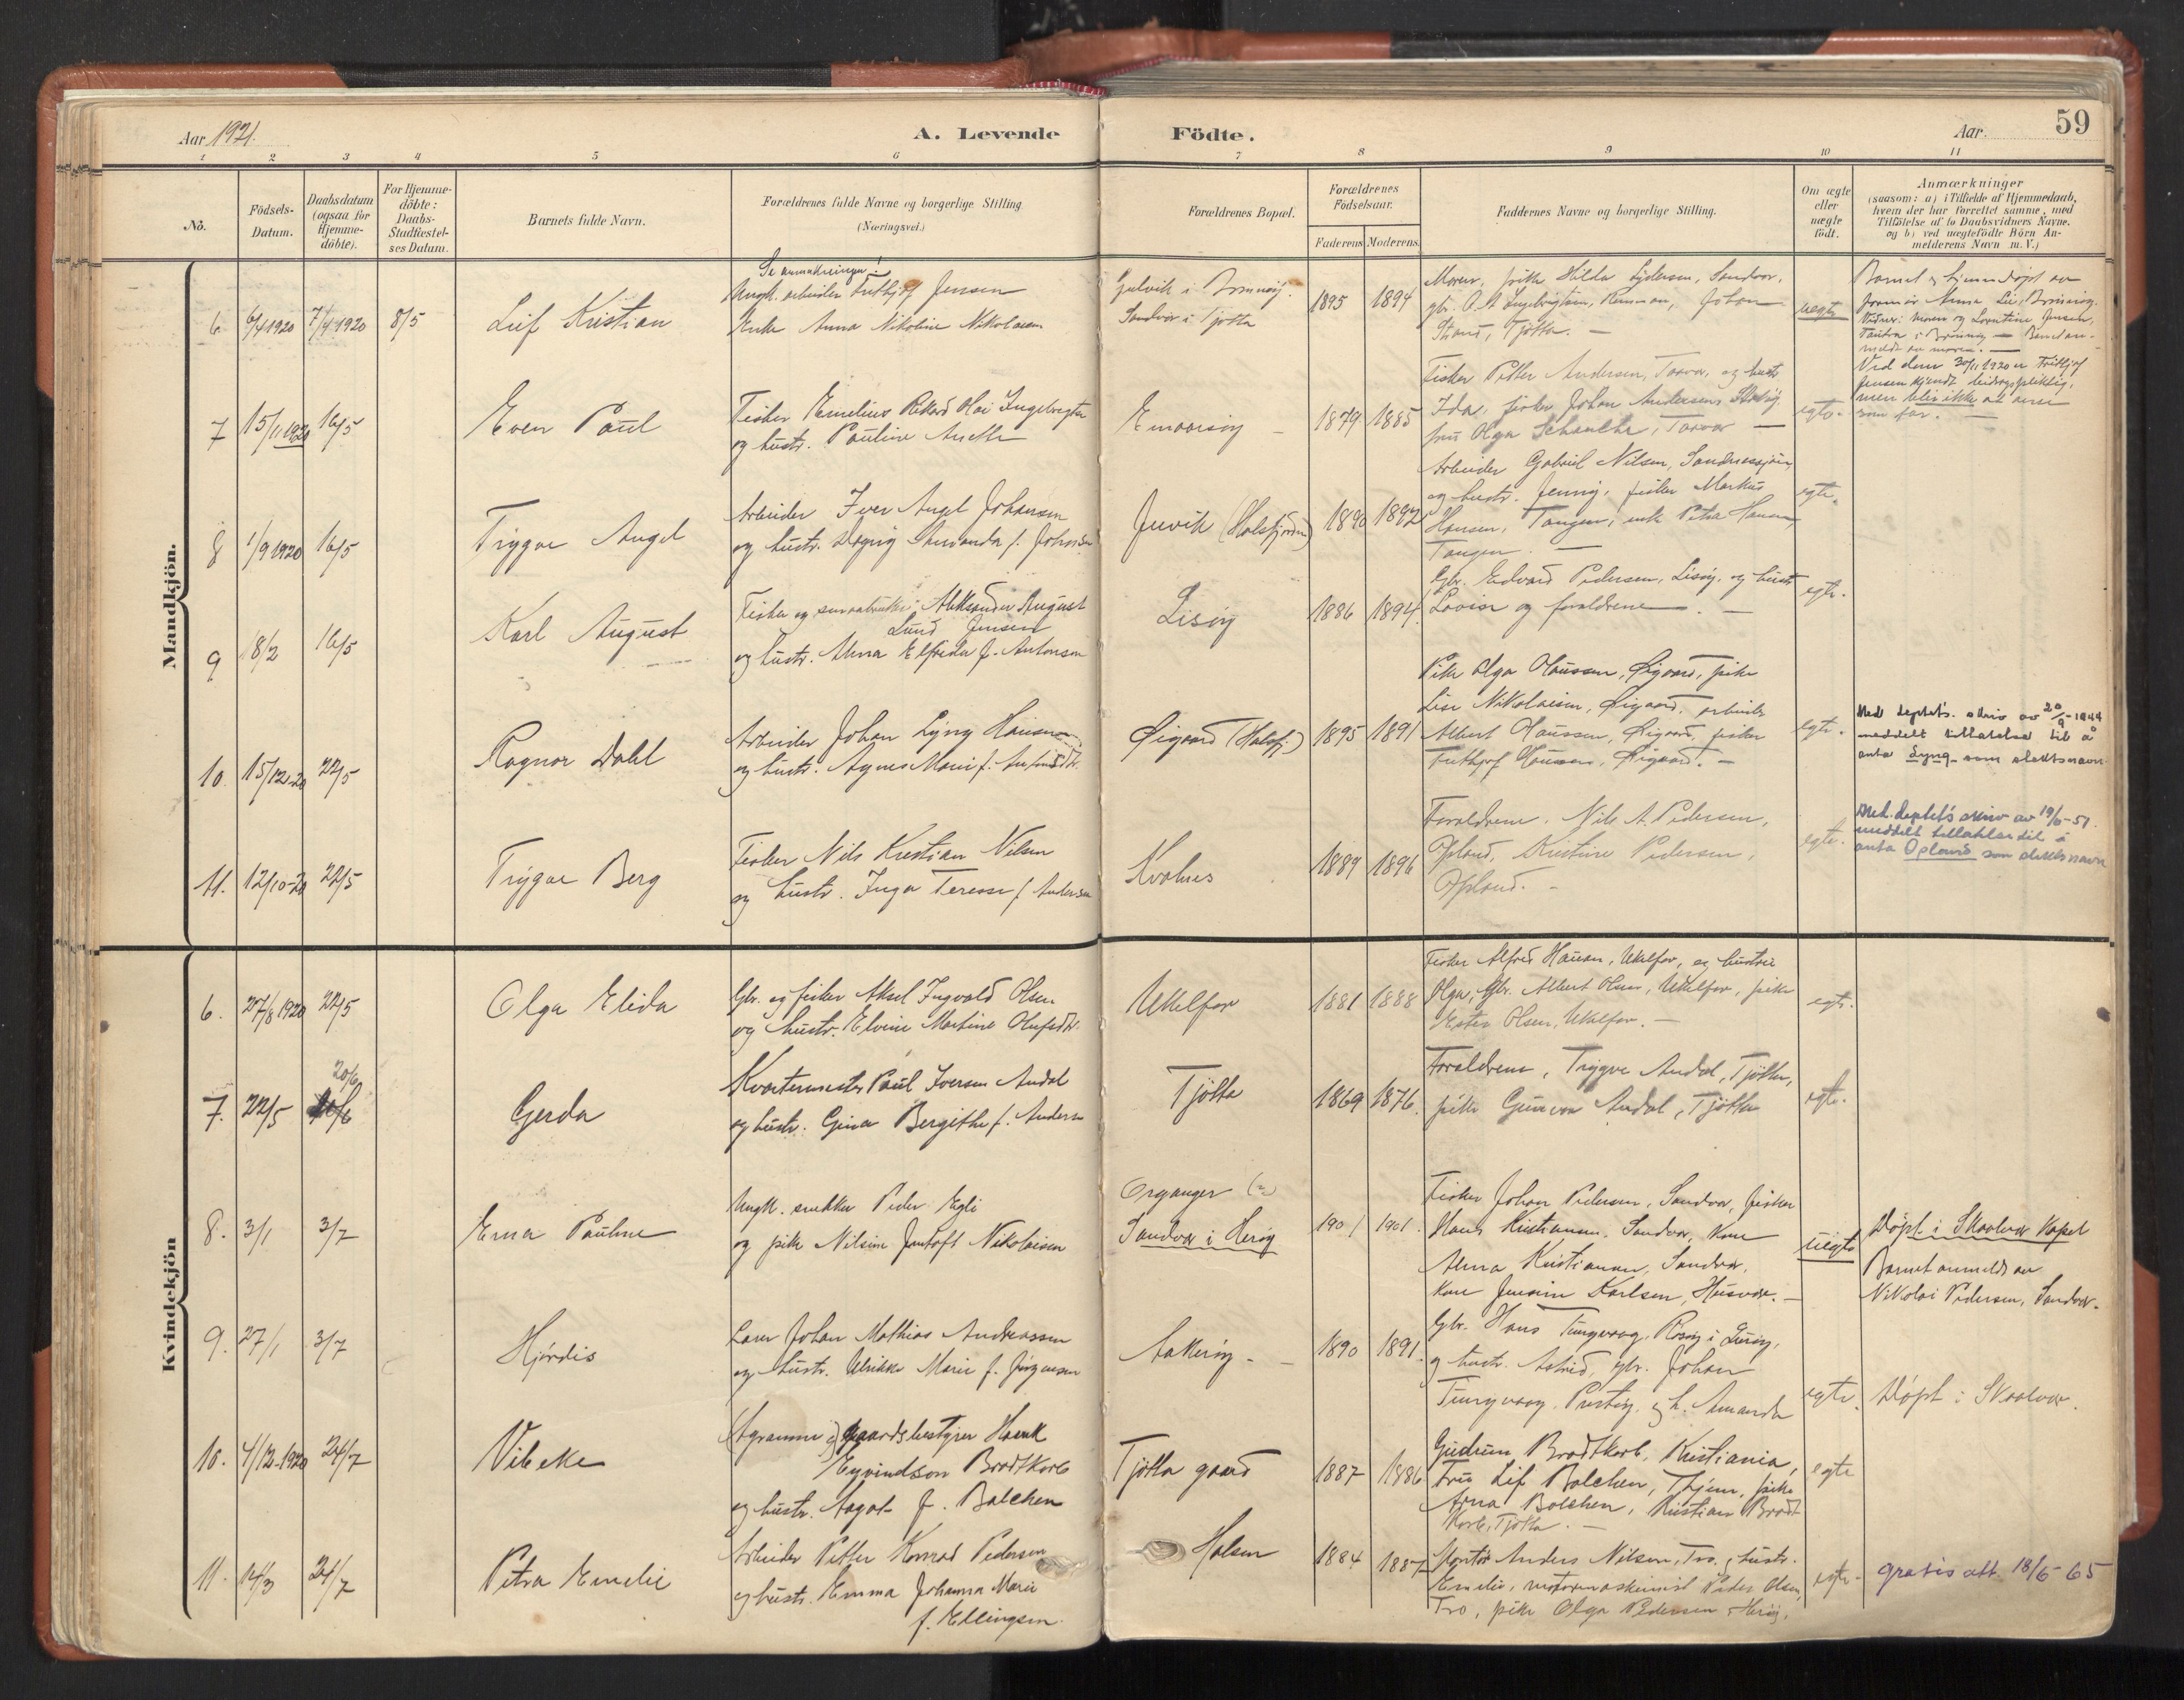 Aar 1921.
A. Levende Födte.
Aar.
59
1 2 3 4 5 6 7 8 9 10 11
No.
Födsels-Datum.
Daabsdatum (ogsaa for Hjemme-döbte).
For Hjemme-döbte: Daabs-Stadfæstel-ses Datum.
Barnets fulde Navn.
Forældrenes fulde Navne og borgerlige Stilling (Næringsvei.)
Forældrenes Bopæl.
Forældrenes Födselsaar.
Faderens Moderens
Faddernes Navne og borgerlige Stilling.
Om ægte eller uægte födt.
Anmærkninger
(saasom: a) i Tilfælde af Hjemmedaab,
hvem der har forrettet samme, med
Tilföielse af to Daabsvidners Navne.
og b) ved uægtefödte Börn An-
melderens Navn m. V.)
Mandkjön.
6. 6/4 1920 7/4 1920 8/5 Leif Kristian
Se anmerkninger!
Ungk. arbeider Frithjof Jensen
Enke Anna Nikoline Nikolaisen
i Brønnøy.
Sandvær i Tjøtta
1895 1894
Moren, pike Hilda Lydersen, Sandvær,
Johan
Strand, Tjøtta. —
uegte
Barnet er hjemmedøpt av
jormor Anna Lie, Brønnøy.
Vidner: Moren og Lorentine Jensen,
i Brønnøy — Barnet an-
meldt av moren. —
Ved dom 30/11 1920 er Fritjof
Jensen kjendt bidragspliktig,
men blir ikke at anse
som far. —
7 15/11 1920 16/5 Even Paul
Fisker Emelius Rikard Olai Ingebrigtsen
og hustr. Pauline Anette
1879 1885
Fisker Petter Andersen, Torvær, og hustr
Ida, fisker Johan Andersen,
fru Olga Schanche, Torvær —
egte.
8 1/9 1920 16/5 Trygve Angel
Arbeider Iver Angel Johansen
og hustr. Dagny f. Johnsen
(Halsfjorden)
1890 1892
Arbeider Gabriel Nilsen, Sandnessjøen,
og hustr. Jenny, fisker Markus
Hansen, Tangen, enke Petra Hansen
Tangen. —
egte.
9 18/2 16/5 Karl August
Fisker og smaabruker Aleksander August
Lund Jensen
og hustr. Alma Elfrida f. Antonsen
Lisøy
1886 1894.
Gbr. Edvard Pedersen, Lisøy, og hustr
Lovise og forældrene. —
egte.
10. 15/12-20 22/5 Ragnar Dahl
Arbeider Johan Lyng Hansen
og hustr. Agnes Marie f.
Øigaard (Halsfj.)
1895 1891
Pike Olga Hanssen, Øigaard, pike
Lise Nikolaisen, Øigaard, arbeider
Albert Hanssen, Øigaard, fisker
Frithjof Hanssen, Øigaard. —
egte.
Med deptets. skriv av 20/9-1944
meddelt tillatelse til å
anta Lyng som slektsnavn
11. 12/10-20 22/5 Trygve Berg
Fisker Nils Kristian Nilsen
og hustr. Inga Terese f. Andersen
Kvalnes
1889 1896
Forældrene, Nils A. Pedersen,
Opland, Kristine Pedersen,
Opland. -
egte.
Med deptets skriv av 19/6-51.
meddelt tillatelse til å
anta Opland som slektsnavn
Kvindekjön
6. 27/8 1920 22/5 Olga Elida
Gbr. og fisker Aksel Ingvald Olsen
og hustr. Elvine Martine Olufsdtr.
Ulkelfor
1881 1888
Fisker Alfred Hansen, Ulkelfor, og hustru
Olga, Gbr. Albert Olsen, Ulkelfor, pike
Ester Olsen, Ulkelfor. —
egte.
7. 22/5 20/6 Gerda
Kvartermester Paul Iversen Andal
og hustr. Gina Bergithe f. Andersen
Tjøtta
1869 1876.
Forældrene, Trygve Andal, Tjøtta,
pike Gunvor Andal, Tjøtta
egte.
8. 3/1 3/7 Erna Pauline
Ungk. snekker Peder Egli
og pike Nilsine Jentoft Nikolaisen
Organger (?)
Sandvær i Herøy
1901 1901.
Fisker Johan Pedersen, Sandvær, fisker
Hans Kristiansen, Sandvær, kone
Alma Kristiansen, Sandvær,
kone Jensine Karlsen, Husvær. —
uegte
Døpt i Skaalvær Kapel
Barnet anmeldt av
Nikolai Pedersen, Sandvær.
9. 27/1 3/7 Hjørdis
Lærer Johan Mathias Andreassen
og hustr. Ulrikke Marie f. Jørgensen
1890 1891.
Gbr. Hans Tungvaag, Rosøy i Lurøy,
og hustr. Astrid, gbr. Johan
Tungvaag, Prestøy, og h. Amanda
egte.
Døpt i Skaalvær.
10. 4/12-1920 24/7 Vibeke
(Agronom og) gaardsbestyrer Henrik
Eyvindson Brodtkorb
og hustr. Aagot f. Balchen
Tjøtta gaard
1887 1886
Gudrun Brodtkorb, Kristiania,
Fru Lif Balchen, Thjem, pike
Arna Balchen, Kristian Brodt
korb, Tjøtta. —
egte
11. 14/3 24/7 Petra Emelie
Arbeider Petter Konrad Pedersen
og hustr. Emma Johanna Marie
f. Ellingsen.
Halsen
1884 1887
Anders Nilsen, Tro, og hustr.
Emelie, motormaskinist Peder Olsen,
Tro, pike Olga Pedersen, Herøy.
egte.
gratis att. 18/6-65